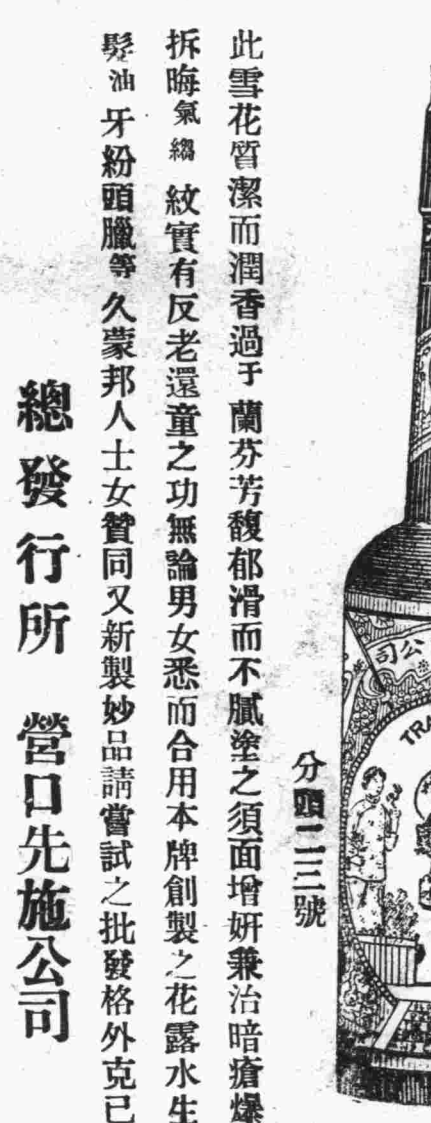 公司
TRA
分頭二三號
此雪花質潔而潤香過于蘭芬芳馥郁滑而不膩塗之須面增妍兼治暗瘡爆
拆晦氣縐紋實有反老還童之功無論男女悉而合用本牌創製之花露水生
髮油牙粉頭臘等久蒙邦人士女贊同又新製妙品請嘗試之批發格外克己
總發行所 營口先施公司